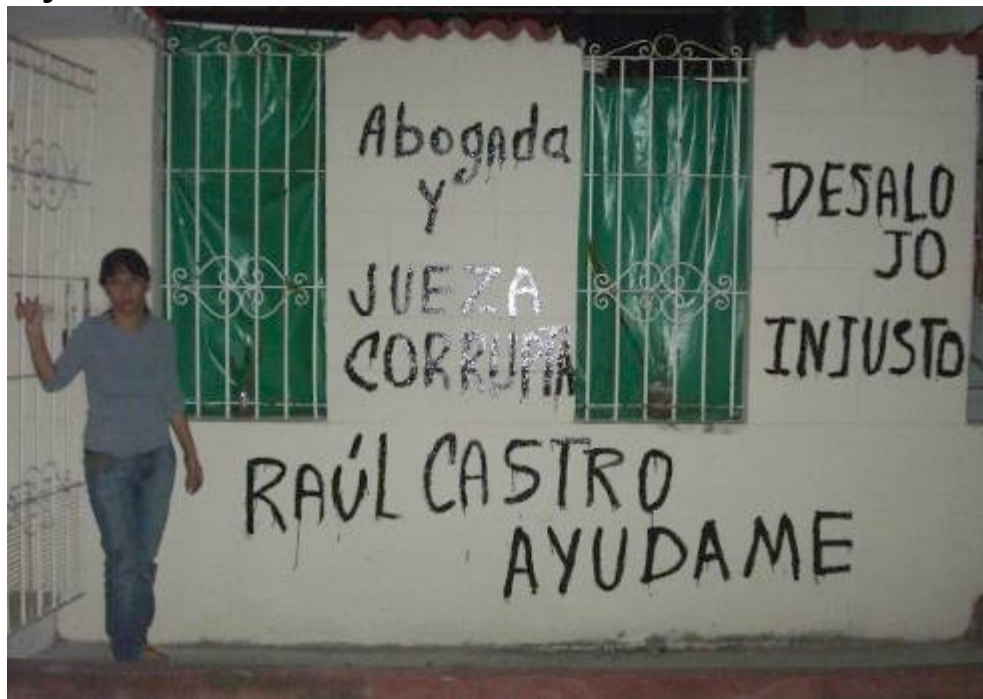 Abogada
Y
JUEZA
CORRUPTA
DESALO
JO
INJUSTO
RAÚL CASTRO
AYUDAME